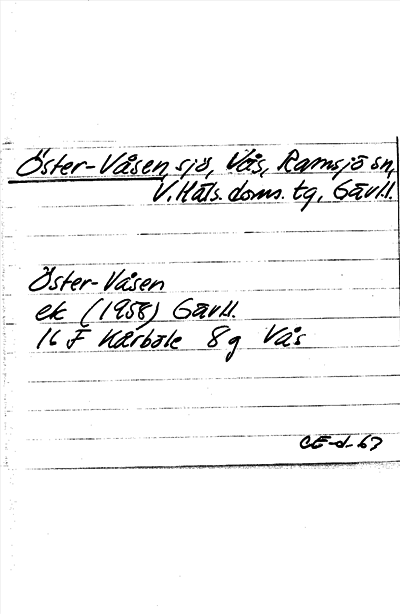 Öster-Våsen, sjö, Vås, Ramsjö sn,
V. Häls. doms. tg, Gävl.l.
Öster-Våsen
ek (1958) Gävl.l.
16 F Kårböle 8g Vås
CE-d-67